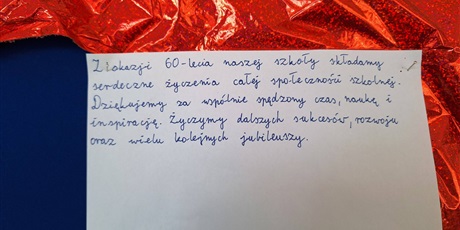 Z okazji 60-lecia naszej szkoły składamy
serdeczne życzenia całej społeczności szkolnej.
Dziękujemy za wspólnie spędzony czas, naukę i
inspirację. Życzymy dalszych sukcesów, rozwoju
oraz wielu kolejnych jubileuszy.